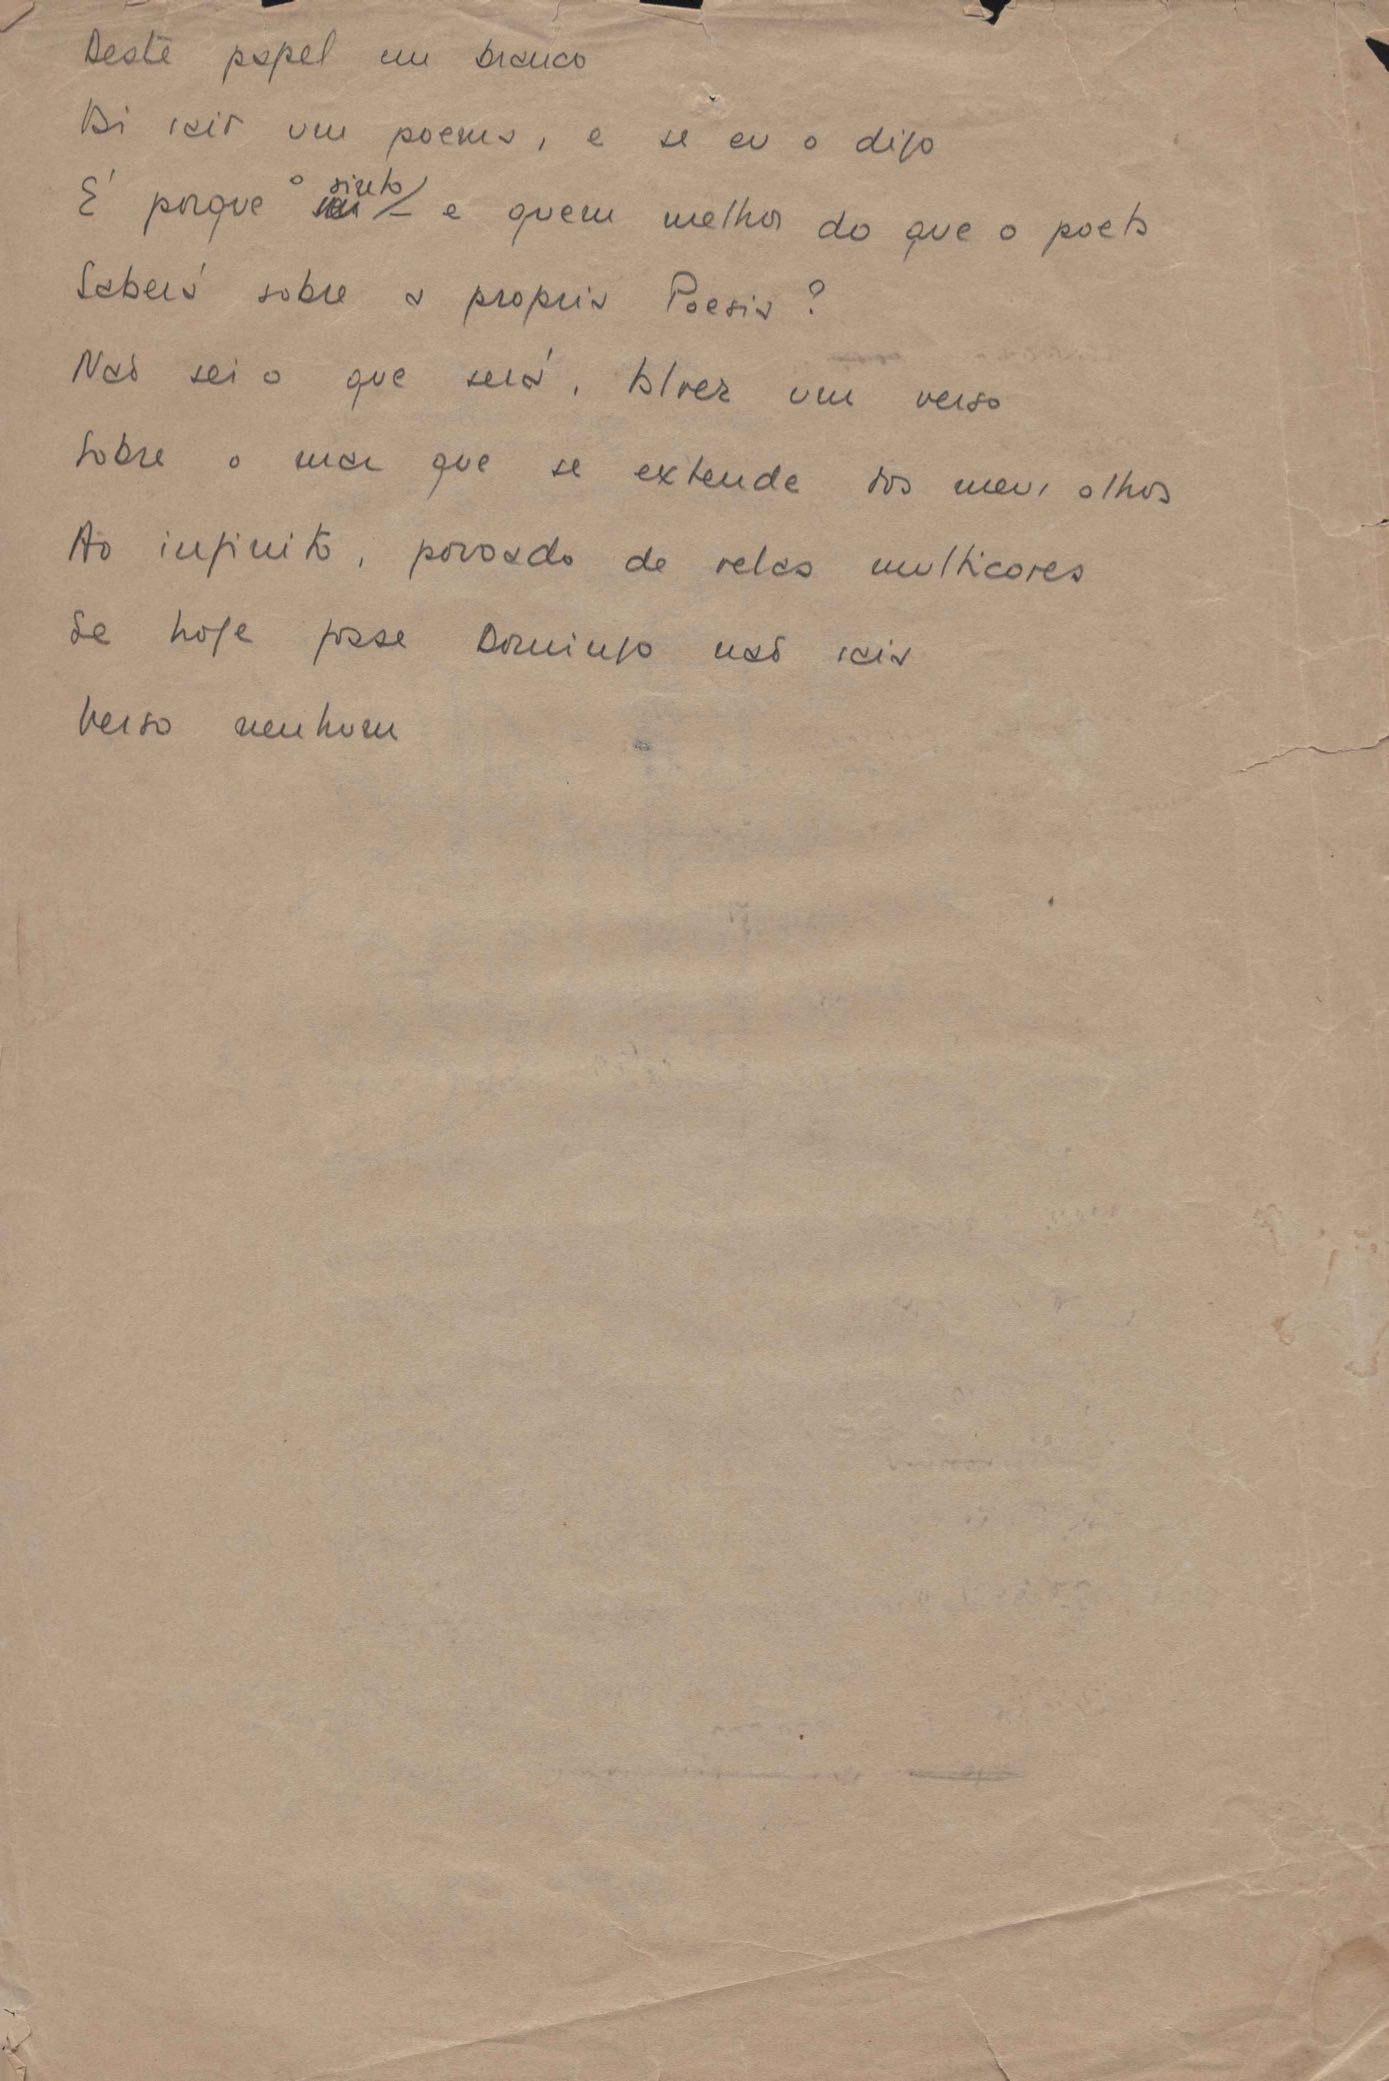 Deste papel em branco
Vai sair um poema, e se eu o digo
É porque o sinto – e quem melhor do que o poeta
Saberá sobre a propria Poesia?
Não sei o que será, talvez um verso
Sobre o mar que se extende aos meus olhos
Ao infinito, povoado de velas multicores
Se hoje fosse Domingo não saia
Verso nenhum